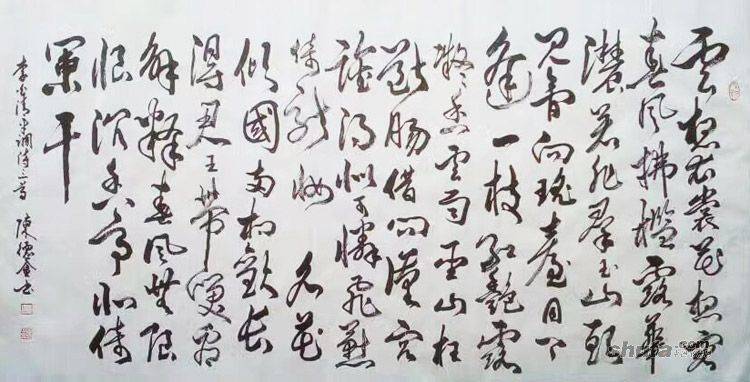 雲想衣裳花想容
春風拂檻露華
濃若非羣玉山頭
見會向瑤臺月下
逢一枝紅艷露
凝香雲雨巫山枉
斷腸借問漢宮
誰得似可憐飛燕
倚新妝 名花
傾國兩相歡長
得君王帶笑看
解釋春風無限
恨沉香亭北倚
闌干
李白清平調詩三首 陳德書